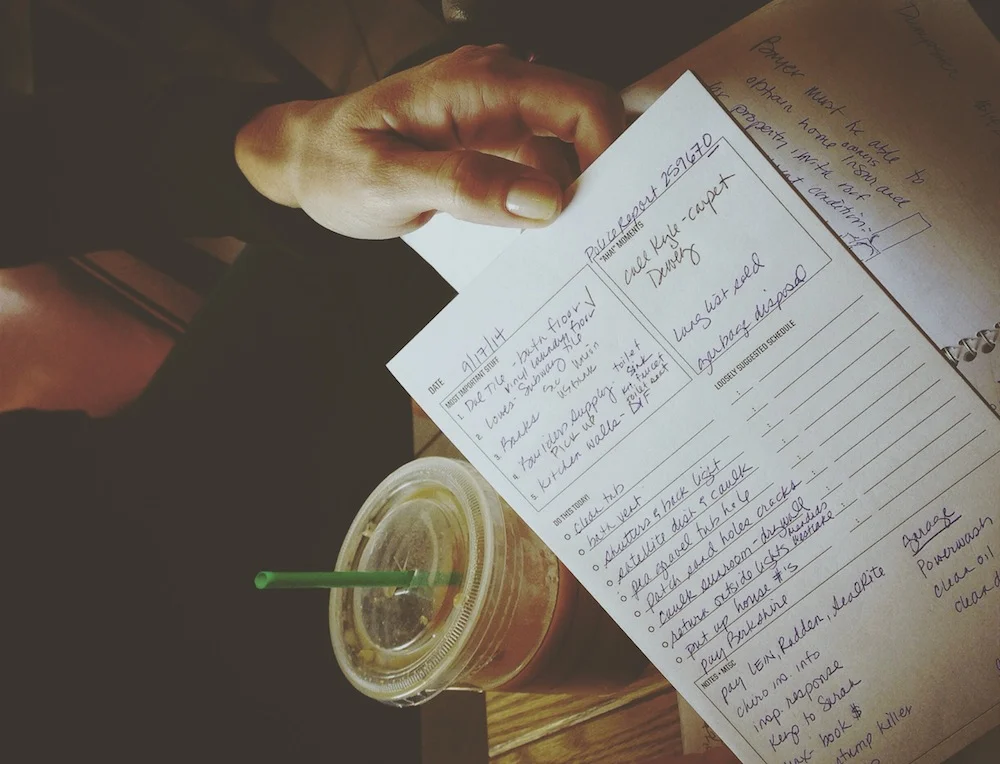 Police Report 259670
DATE 9/17/14
MOST IMPORTANT STUFF
1. Due Tile - bath floor √
vinyl laundry floor
2. Lowes - Subway Tile
3. Banks - SC Union
US Bank
4. Builders Supply - toilet
Pick up
toilet seat
5. Kitchen walls - DIF
"AHA" MOMENTS
call Kyle - carpet
Delivery
long list sold
garbage disposal
DO THIS TODAY!
clean tub
bath vent
shutters & back light
satellite dish & caulk
pea gravel tub hole
patch sand holes cracks
caulk sunroom - drywall
return outside lights
put up house #'s
pay Berkshire
LOOSELY SUGGESTED SCHEDULE
:
:
:
:
:
:
NOTES + MISC
pay LEIN, Redden, SealRite
chiro ins. info
insp. response
Keep to Sarah
book $
stump killer
garage
Powerwash
clean oil
clean
Buyer must be able to
obtain home owners
insurance
for property, with roof
condition